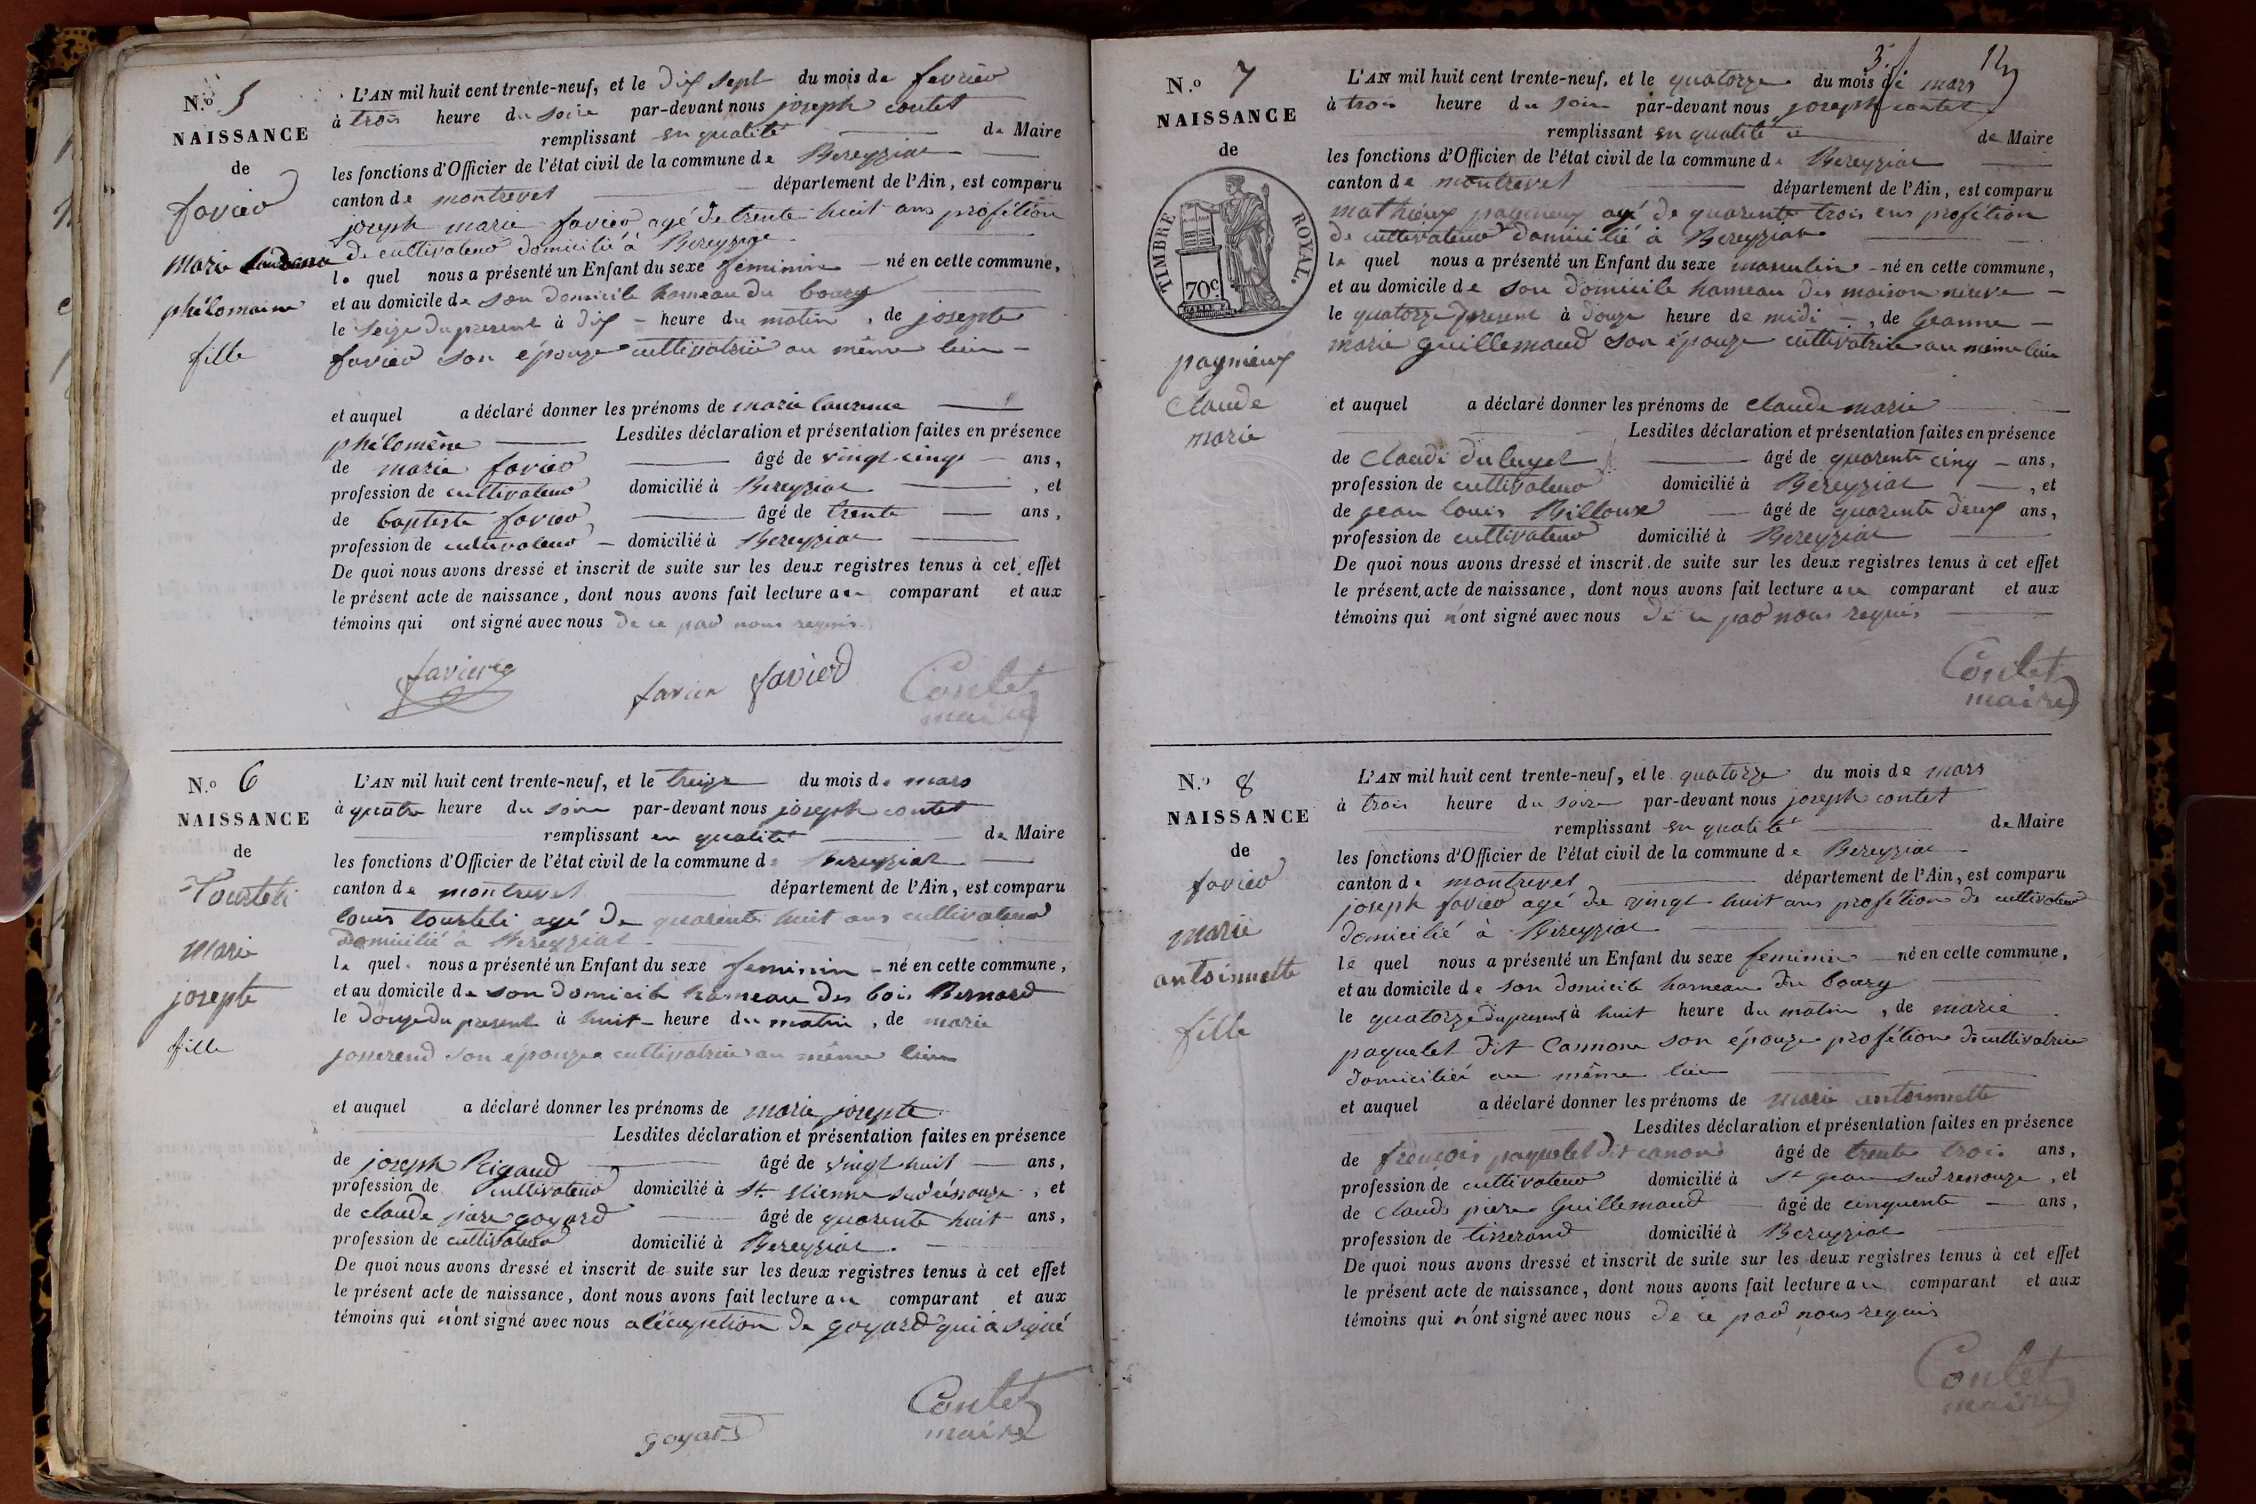 N.o 5
NAISSANCE
de
favier
marie laurence
philomaine
fille
L'AN mil huit cent trente-neuf, et le dix sept du mois de fevrier
à trois heure du soire par-devant nous joseph contet
remplissant en qualité de Maire
les fonctions d'Officier de l'état civil de la commune de Bereyziat
canton de montrevel département de l'Ain, est comparu
joseph marie favier agé de trente huit ans profétion
de cultivateur domicilié à Bereyziat
le quel nous a présenté un Enfant du sexe feminin né en cette commune,
et au domicile de son domicile hameau du bourg
le seize du present à dix heure du matin, de josepte
favier son épouze cultivatrice au même lieu
et auquel a déclaré donner les prénoms de marie laurence
philomène Lesdites déclaration et présentation faites en présence
de marie favier âgé de vingt cinq ans,
profession de cultivateur domicilié à Bereyziat, et
de baptiste favier âgé de trente ans,
profession de cultivateur domicilié à Bereyziat
De quoi nous avons dressé et inscrit de suite sur les deux registres tenus à cet effet
le présent acte de naissance, dont nous avons fait lecture au comparant et aux
témoins qui ont signé avec nous de ce par nous requis
favier favier favier Contet
maire
N.o 6
NAISSANCE
de
Tourteti
marie
josepte
fille
L'AN mil huit cent trente-neuf, et le treize du mois de mars
à quatre heure du soire par-devant nous joseph contet
remplissant en qualité de Maire
les fonctions d'Officier de l'état civil de la commune de Bereyziat
canton de montrevel département de l'Ain, est comparu
louis tourteti agé de quarente huit ans cultivateur
domicilié à Bereyziat
le quel nous a présenté un Enfant du sexe feminin né en cette commune,
et au domicile de son domicile hameau des bois Bernard
le douze du present à huit heure du matin, de marie
josserend son épouze cultivatrice au même lieu
et auquel a déclaré donner les prénoms de marie josepte
Lesdites déclaration et présentation faites en présence
de joseph Rigaud âgé de vingt huit ans,
profession de cultivateur domicilié à St. Etienne sur résouze, et
de claude piere goyard âgé de quarente huit ans,
profession de cultivateur domicilié à Bereyziat.
De quoi nous avons dressé et inscrit de suite sur les deux registres tenus à cet effet
le présent acte de naissance, dont nous avons fait lecture au comparant et aux
témoins qui n'ont signé avec nous à l'éxception de goyard qui a signé
Contet
goyard maire
3.f
N.o 7
NAISSANCE
de
TIMBRE ROYAL.
70c
pagnieux
claude
marie
L'AN mil huit cent trente-neuf, et le quatorze du mois de mars
à trois heure du soire par-devant nous joseph contet
remplissant en qualité de Maire
les fonctions d'Officier de l'état civil de la commune de Bereyziat
canton de montrevel département de l'Ain, est comparu
mathieux pagnieux agé de quarente trois ans profétion
de cultivateur domicilié à Bereyziat
le quel nous a présenté un Enfant du sexe masculin né en cette commune,
et au domicile de son domicile hameau des maison neuve
le quatorze present à douze heure de midi, de Geanne
marie guillemaud son épouze cultivatrice au même lieu
et auquel a déclaré donner les prénoms de claude marie
Lesdites déclaration et présentation faites en présence
de Claude âgé de quarente cinq ans,
profession de cultivateur domicilié à Béreyziat, et
de jean louis Billoux âgé de quarente deux ans,
profession de cultivateur domicilié à Bereyziat
De quoi nous avons dressé et inscrit de suite sur les deux registres tenus à cet effet
le présent acte de naissance, dont nous avons fait lecture au comparant et aux
témoins qui n'ont signé avec nous de ce par nous requis
Contet
maire
N.o 8
NAISSANCE
de
favier
marie
antoinnette
fille
L'AN mil huit cent trente-neuf, et le quatorze du mois de mars
à trois heure du soire par-devant nous joseph contet
remplissant en qualité de Maire
les fonctions d'Officier de l'état civil de la commune de Bereyziat
canton de montrevel département de l'Ain, est comparu
joseph favier agé de vingt huit ans profétion de cultivateur
domicilié à Bireyziat
le quel nous a présenté un Enfant du sexe feminin né en cette commune,
et au domicile de son domicile hameau du bourg
le quatorze du present à huit heure du matin, de marie
paquelet dit Cannone son épouze profétion de cultivatrice
domiciliéé au même lieu
et auquel a déclaré donner les prénoms de marie antoinnette
Lesdites déclaration et présentation faites en présence
de françois paquelet dit canon âgé de trente trois ans,
profession de cultivateur domicilié à St jean sur ressouze, et
de Claude piere Guillemaud âgé de cinquente ans,
profession de tisserand domicilié à Bereyziat
De quoi nous avons dressé et inscrit de suite sur les deux registres tenus à cet effet
le présent acte de naissance, dont nous avons fait lecture au comparant et aux
témoins qui n'ont signé avec nous de ce par nous requis
Contet
maire